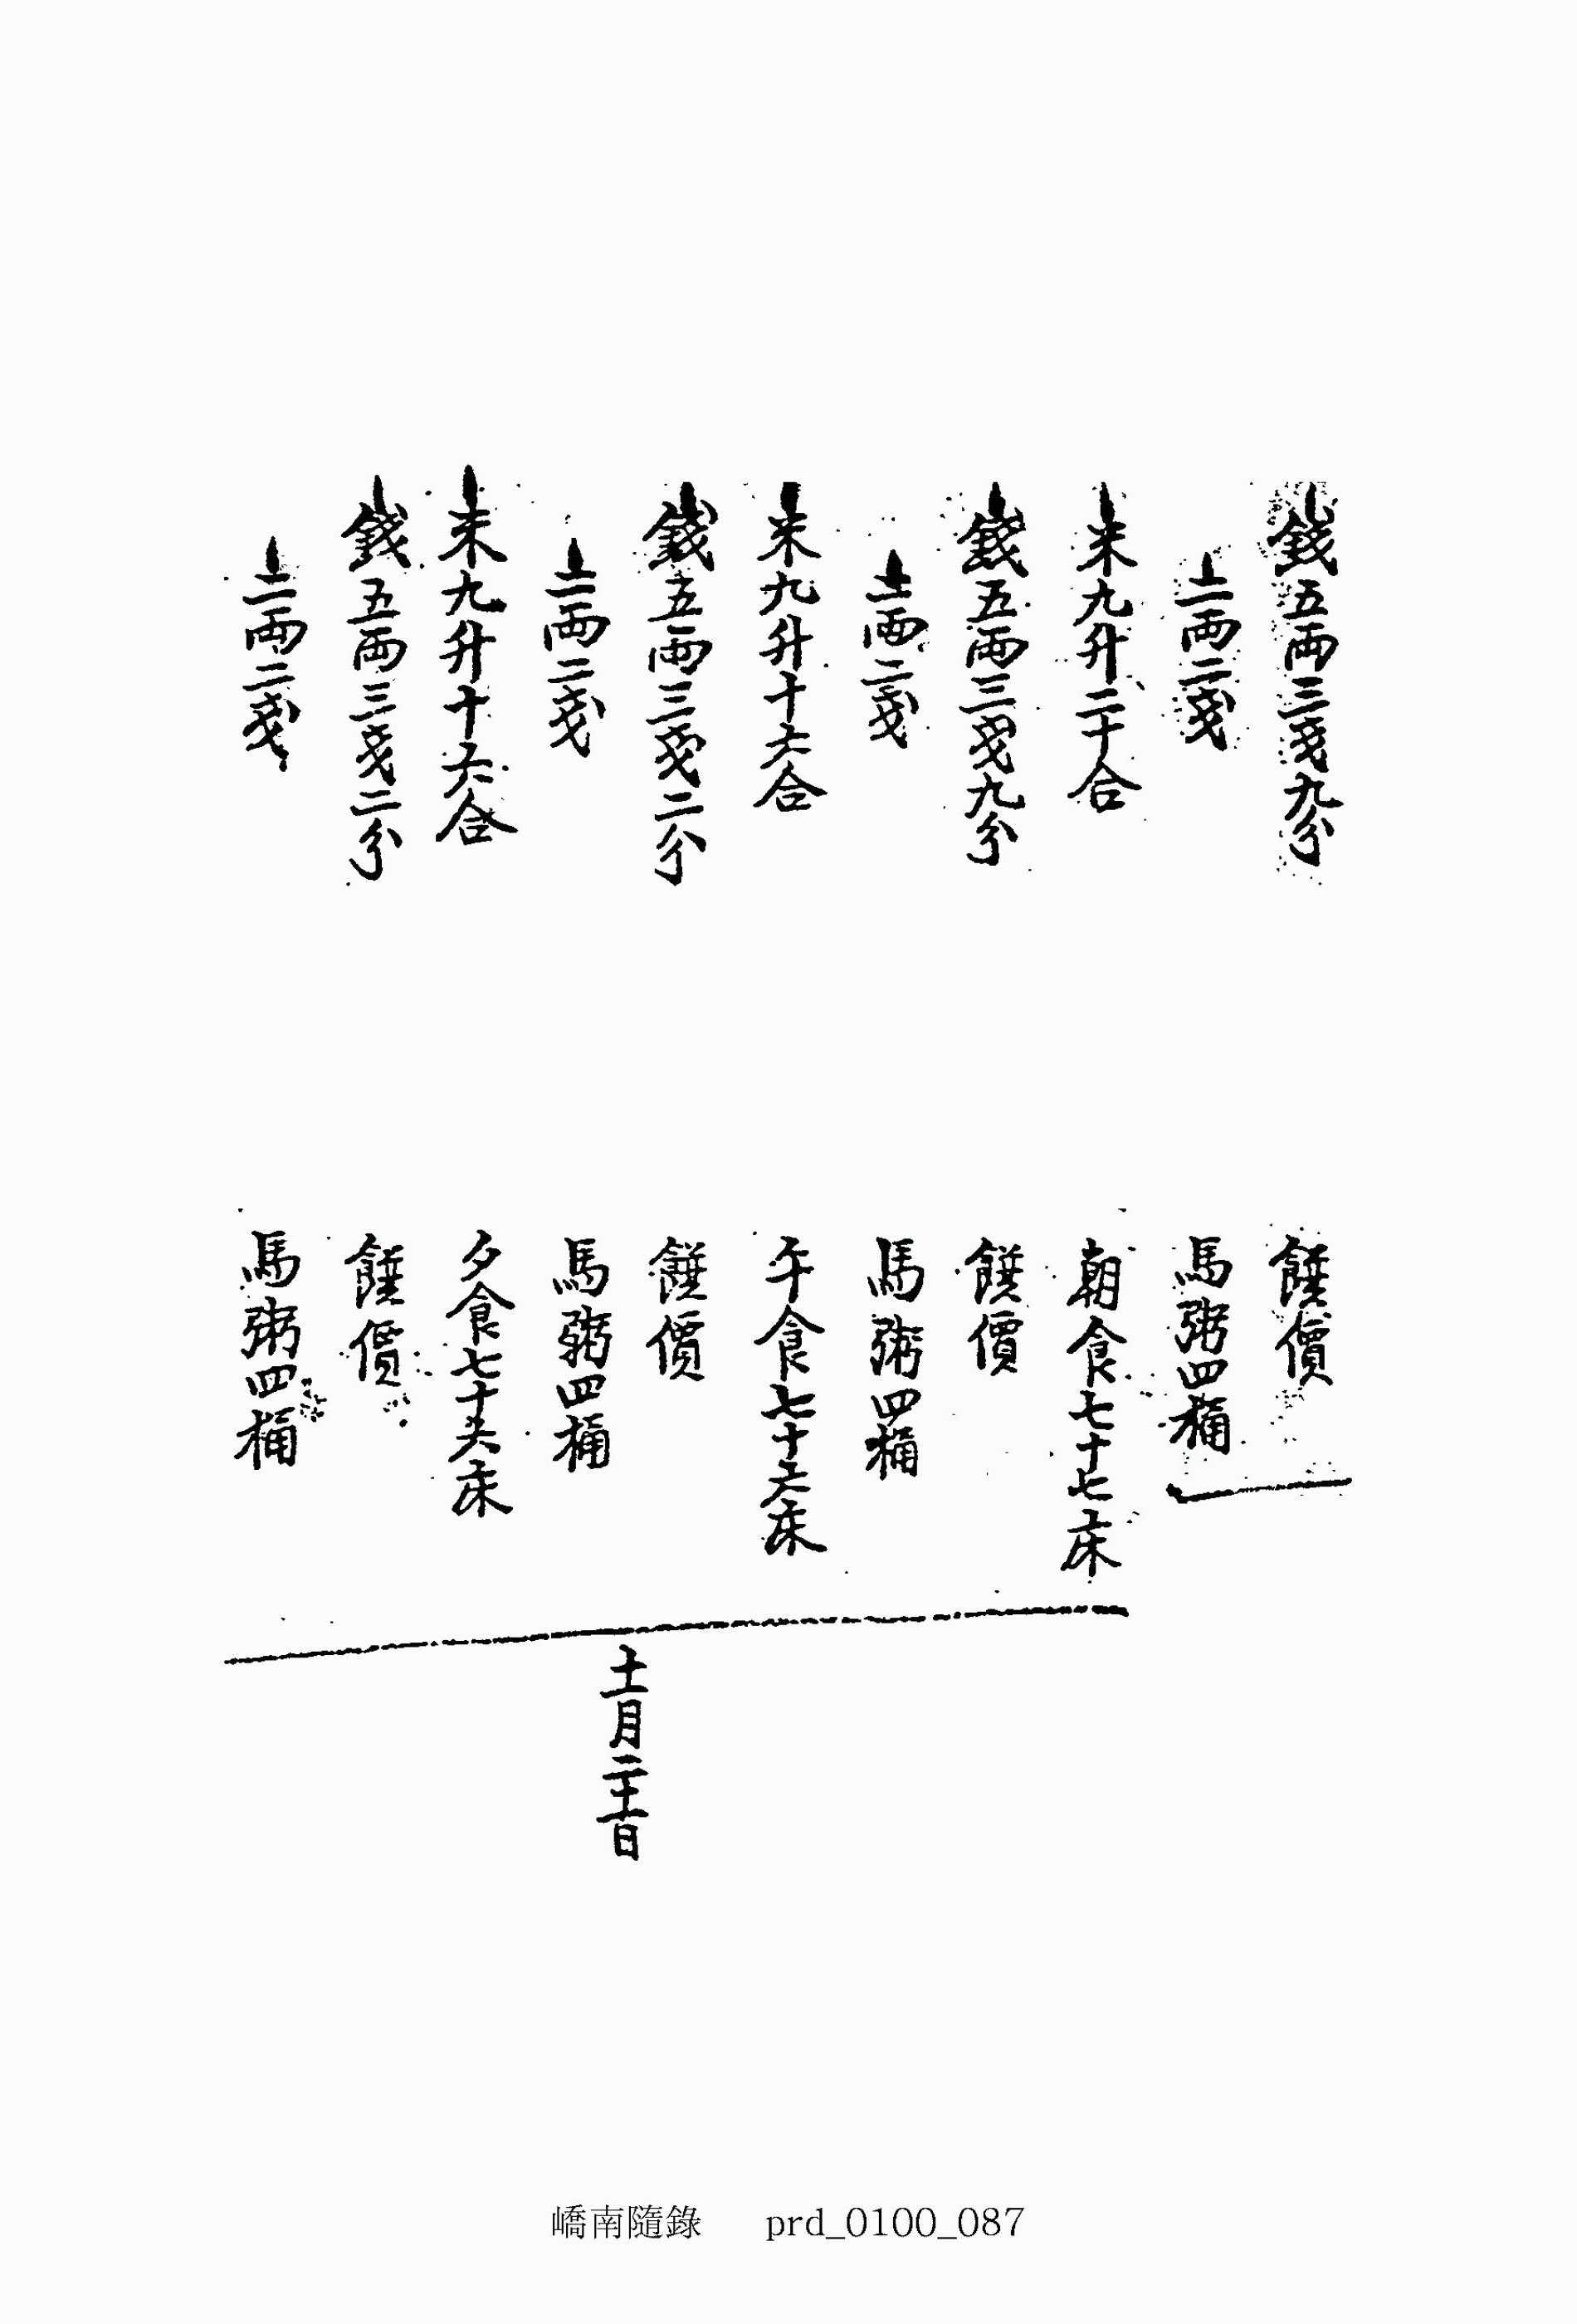 錢五兩三戔九分 饌價
二兩二戔 馬粥四桶
米九升二十合 朝食七十七床
錢五兩三戔九分 饌價
二兩二戔 馬粥四桶
米九升十六合 午食七十六床
錢五兩三戔二分 饌價
二兩二戔 馬粥四桶
米九升十六合 夕食七十六床
錢五兩三戔二分 饌價
二兩二戔 馬粥四桶
十一月二十一日
嶠南隨錄 prd_0100_087